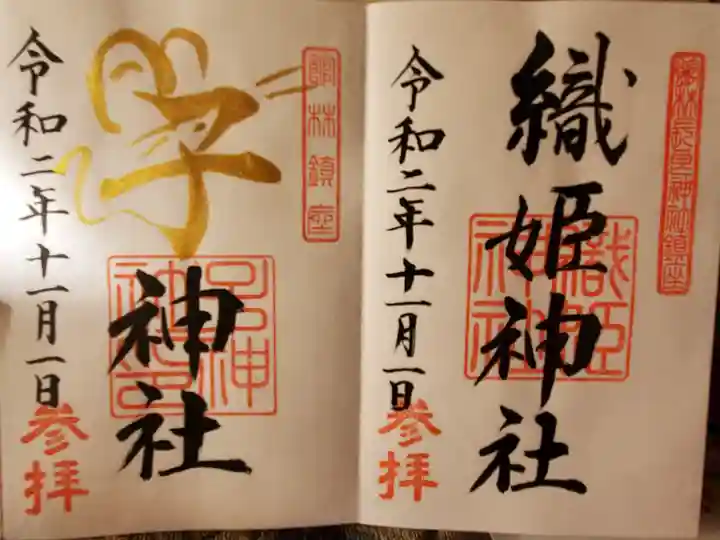 長良神社鎮座
織姫神社
織姫
神社
令和二年十一月一日
参拝
館林鎮座
子神社
令和二年十一月一日
参拝